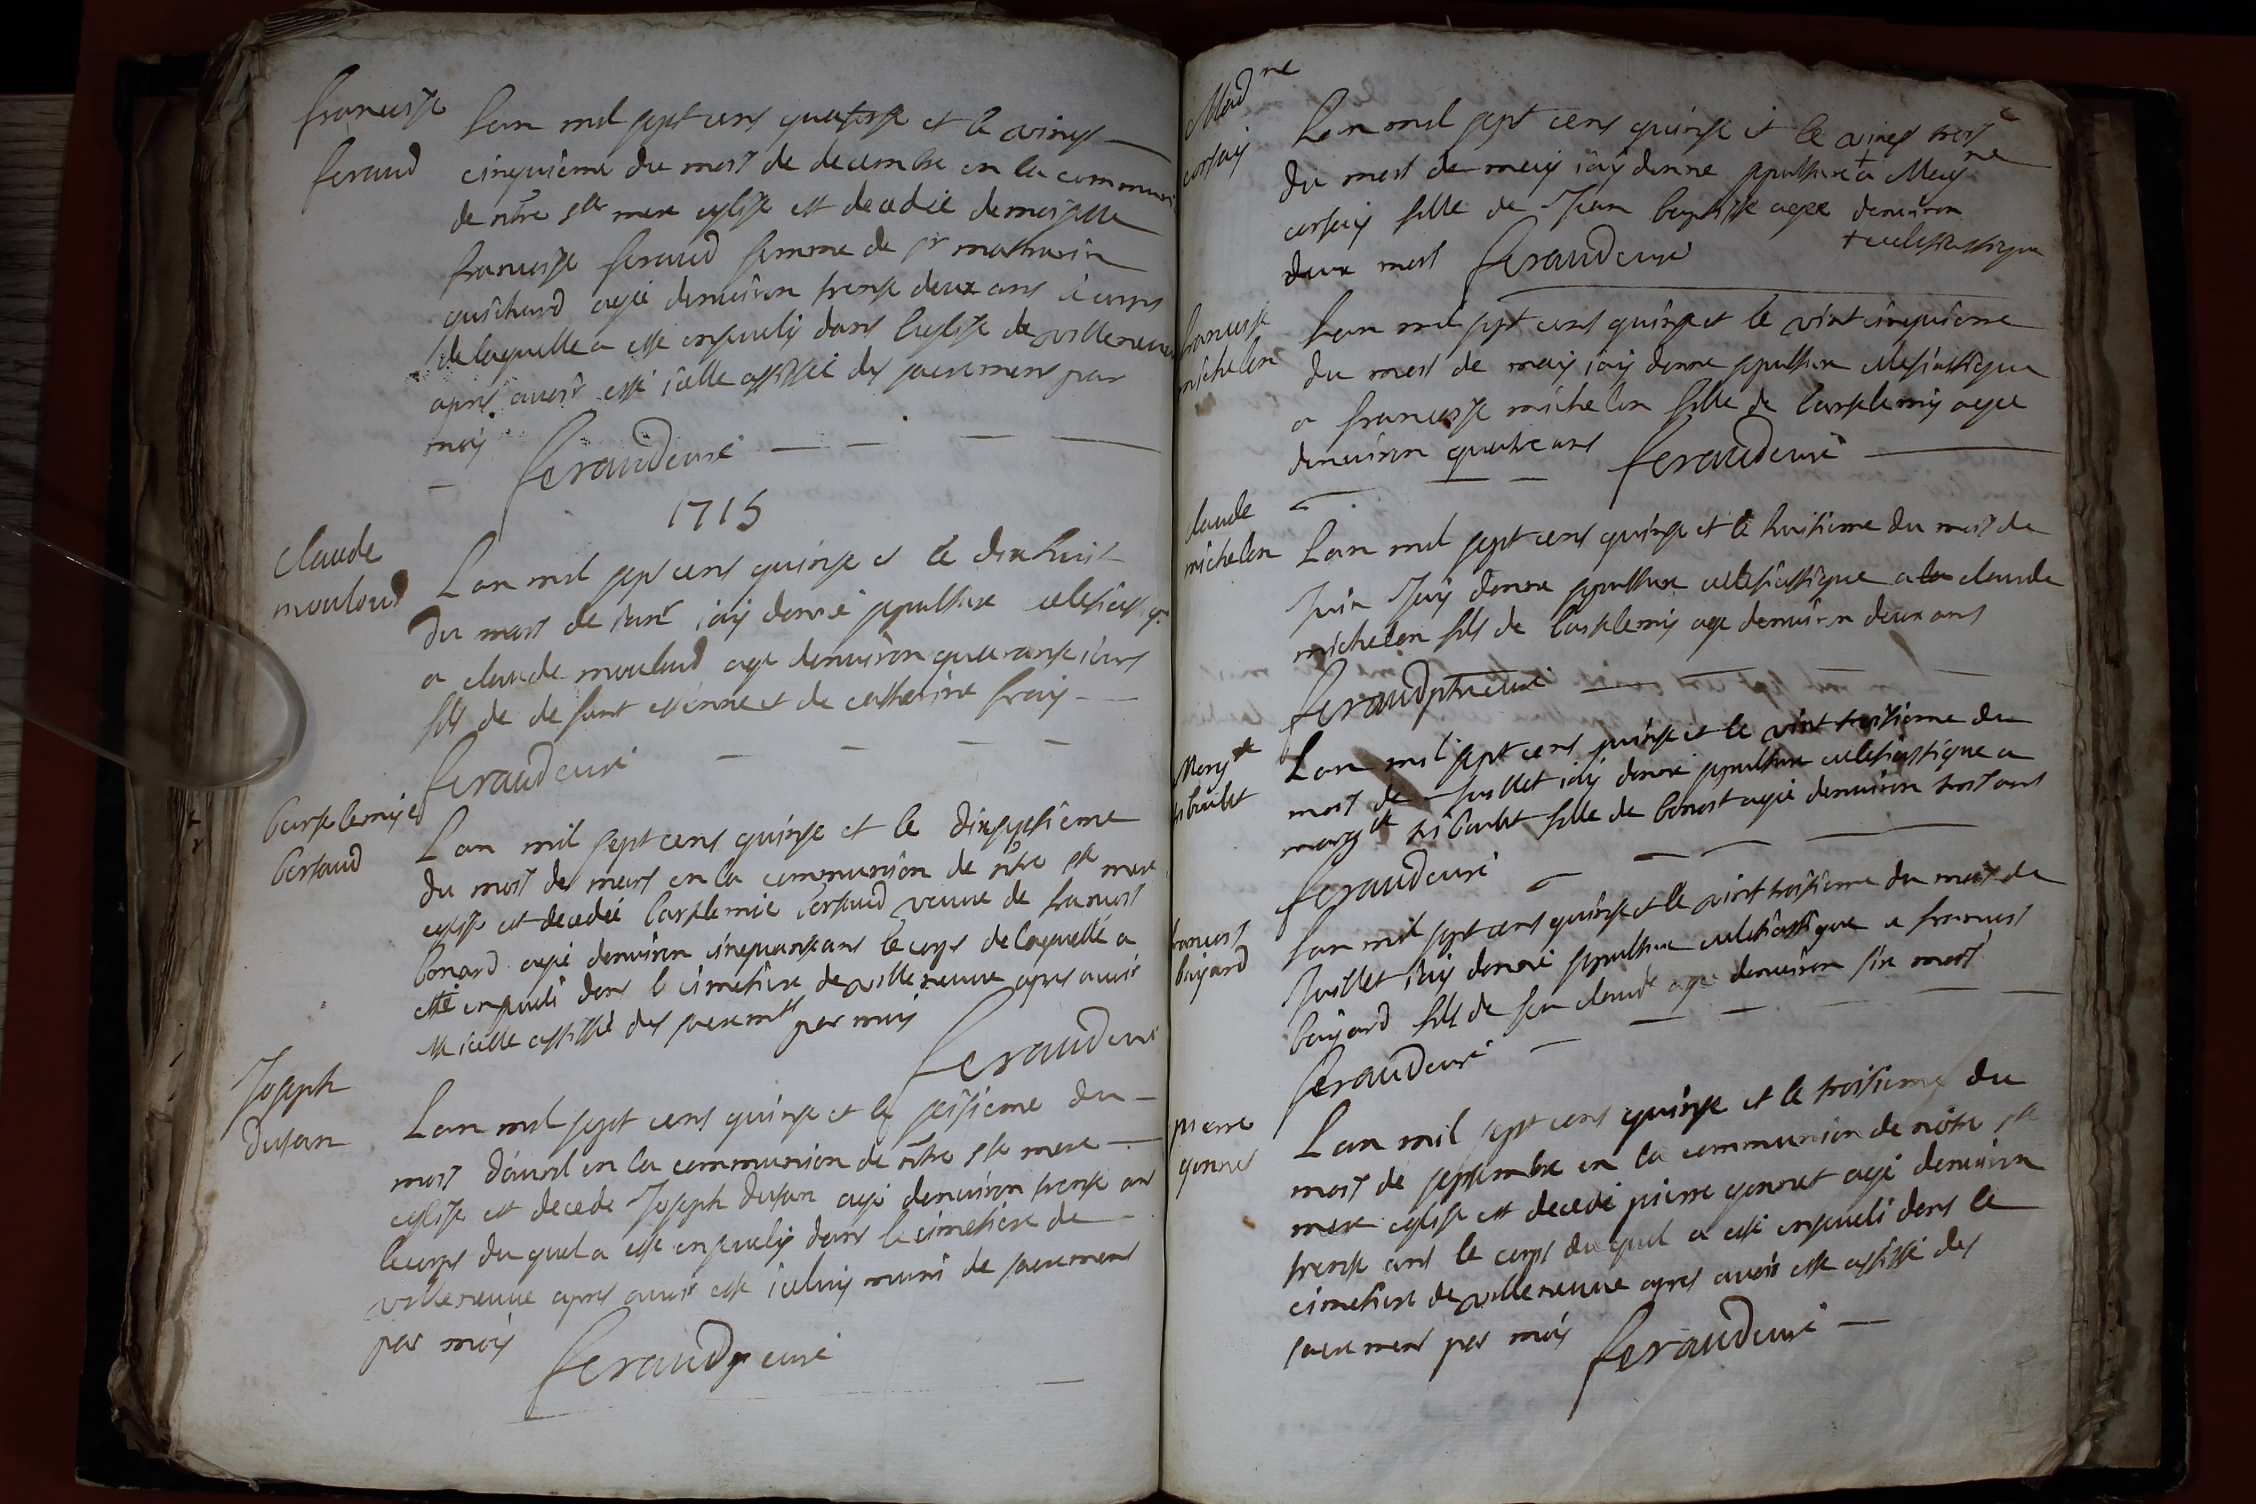 francoise
feraud
Lan mil sept cens quatorse et le vingt
cinquieme du mois de decembre en la communion
de nre ste mere eglise est decedée demoiselle
francoise feraud femme de sr mathurin
guichard agée denuiron trense deux ans le corps
de laquelle a esté enseueli dans leglise de villeneuue
apres auoir esté icelle assistée des sacremens par
moy feraud curé
1715
claude
mouloud
Lan mil sept cens quinse et le dixhuit
du mois de ianr iay donné sepulture eclesiastiq.
a claude mouloud age denuiron quaranse iours
fils de defunt estienne et de catherine frais
feraud curé
bartelemie
bertaud
Lan mil sept cens quinse et le
du mois de mars en la communion de nre ste mere
eglise est decedée bartelemie bertaud veuue de francois
bonard agée denuiron cinquanse ans le corps de laquelle a
esté enseueli dans le cimetiere de villeneuue apres auoir
esté icelle assistée des sacremts par moy
feraud curé
Joseph
dutan
Lan mil sept cens quinse et le seisieme du
mois dauril en la communion de nre ste mere
eglise est decede Joseph dutan agé denuiron trense ans
le corps du quel a esté enseuely dans le cimetiere de
villeneuue apres auoir esté iceluy muni de sacremens
par moy feraud curé
Mad ne
corsay
Lan mil sept cens quinse et le vingt trois e
du mois de may iay donne sepulture + a Mag ne
corsay fille de Jean baptiste agee denuiron
deux mois feraud curé + eclesiastique
francoise
michelon
Lan mil sept cens quinse et le vint cinquieme
du mois de may iay donne sepulture eclesiastique
a francoise michelon fille de bartelemy agee
denuiron quatre ans feraud curé
claude
michelon
Lan mil sept cens quinse et le huitieme du mois de
Juin Jay donne sepulture eclesiastique a claude
michelon fils de bartelemy age denuiron deux ans
feraud ptre curé
Marg te
tiboulet
Lan mil sept cens quinse et le vint troisieme du
mois de Juillet iay donné sepulture eclesiastique a
marg te tiboulet fille de benoist agée denuiron trois ans
feraud curé
francois
bayard
Lan mil sept cens quinse et le vint troisieme du mois de
Juillet iay donné sepulture eclesiastique a francois
bayard fils de feu claude age denuiron six mois
feraud curé
pierre
gonnet
Lan mil sept cens quinse et le troisieme du
mois de septembre en la communion de nôtre ste
mere eglise est decedé pierre gonnet agé denuiron
trense ans le corps duquel a esté enseueli dans le
cimetiere de villeneuue apres auoir esté assisté des
sacremens par moy feraud curé